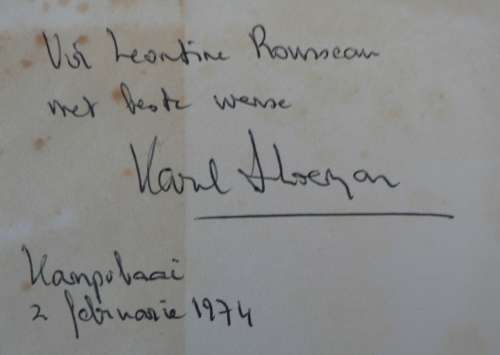 Vir Leontine Rousseau
met beste wense
Karel Schoeman
Kampsbaai
2 februarie 1974